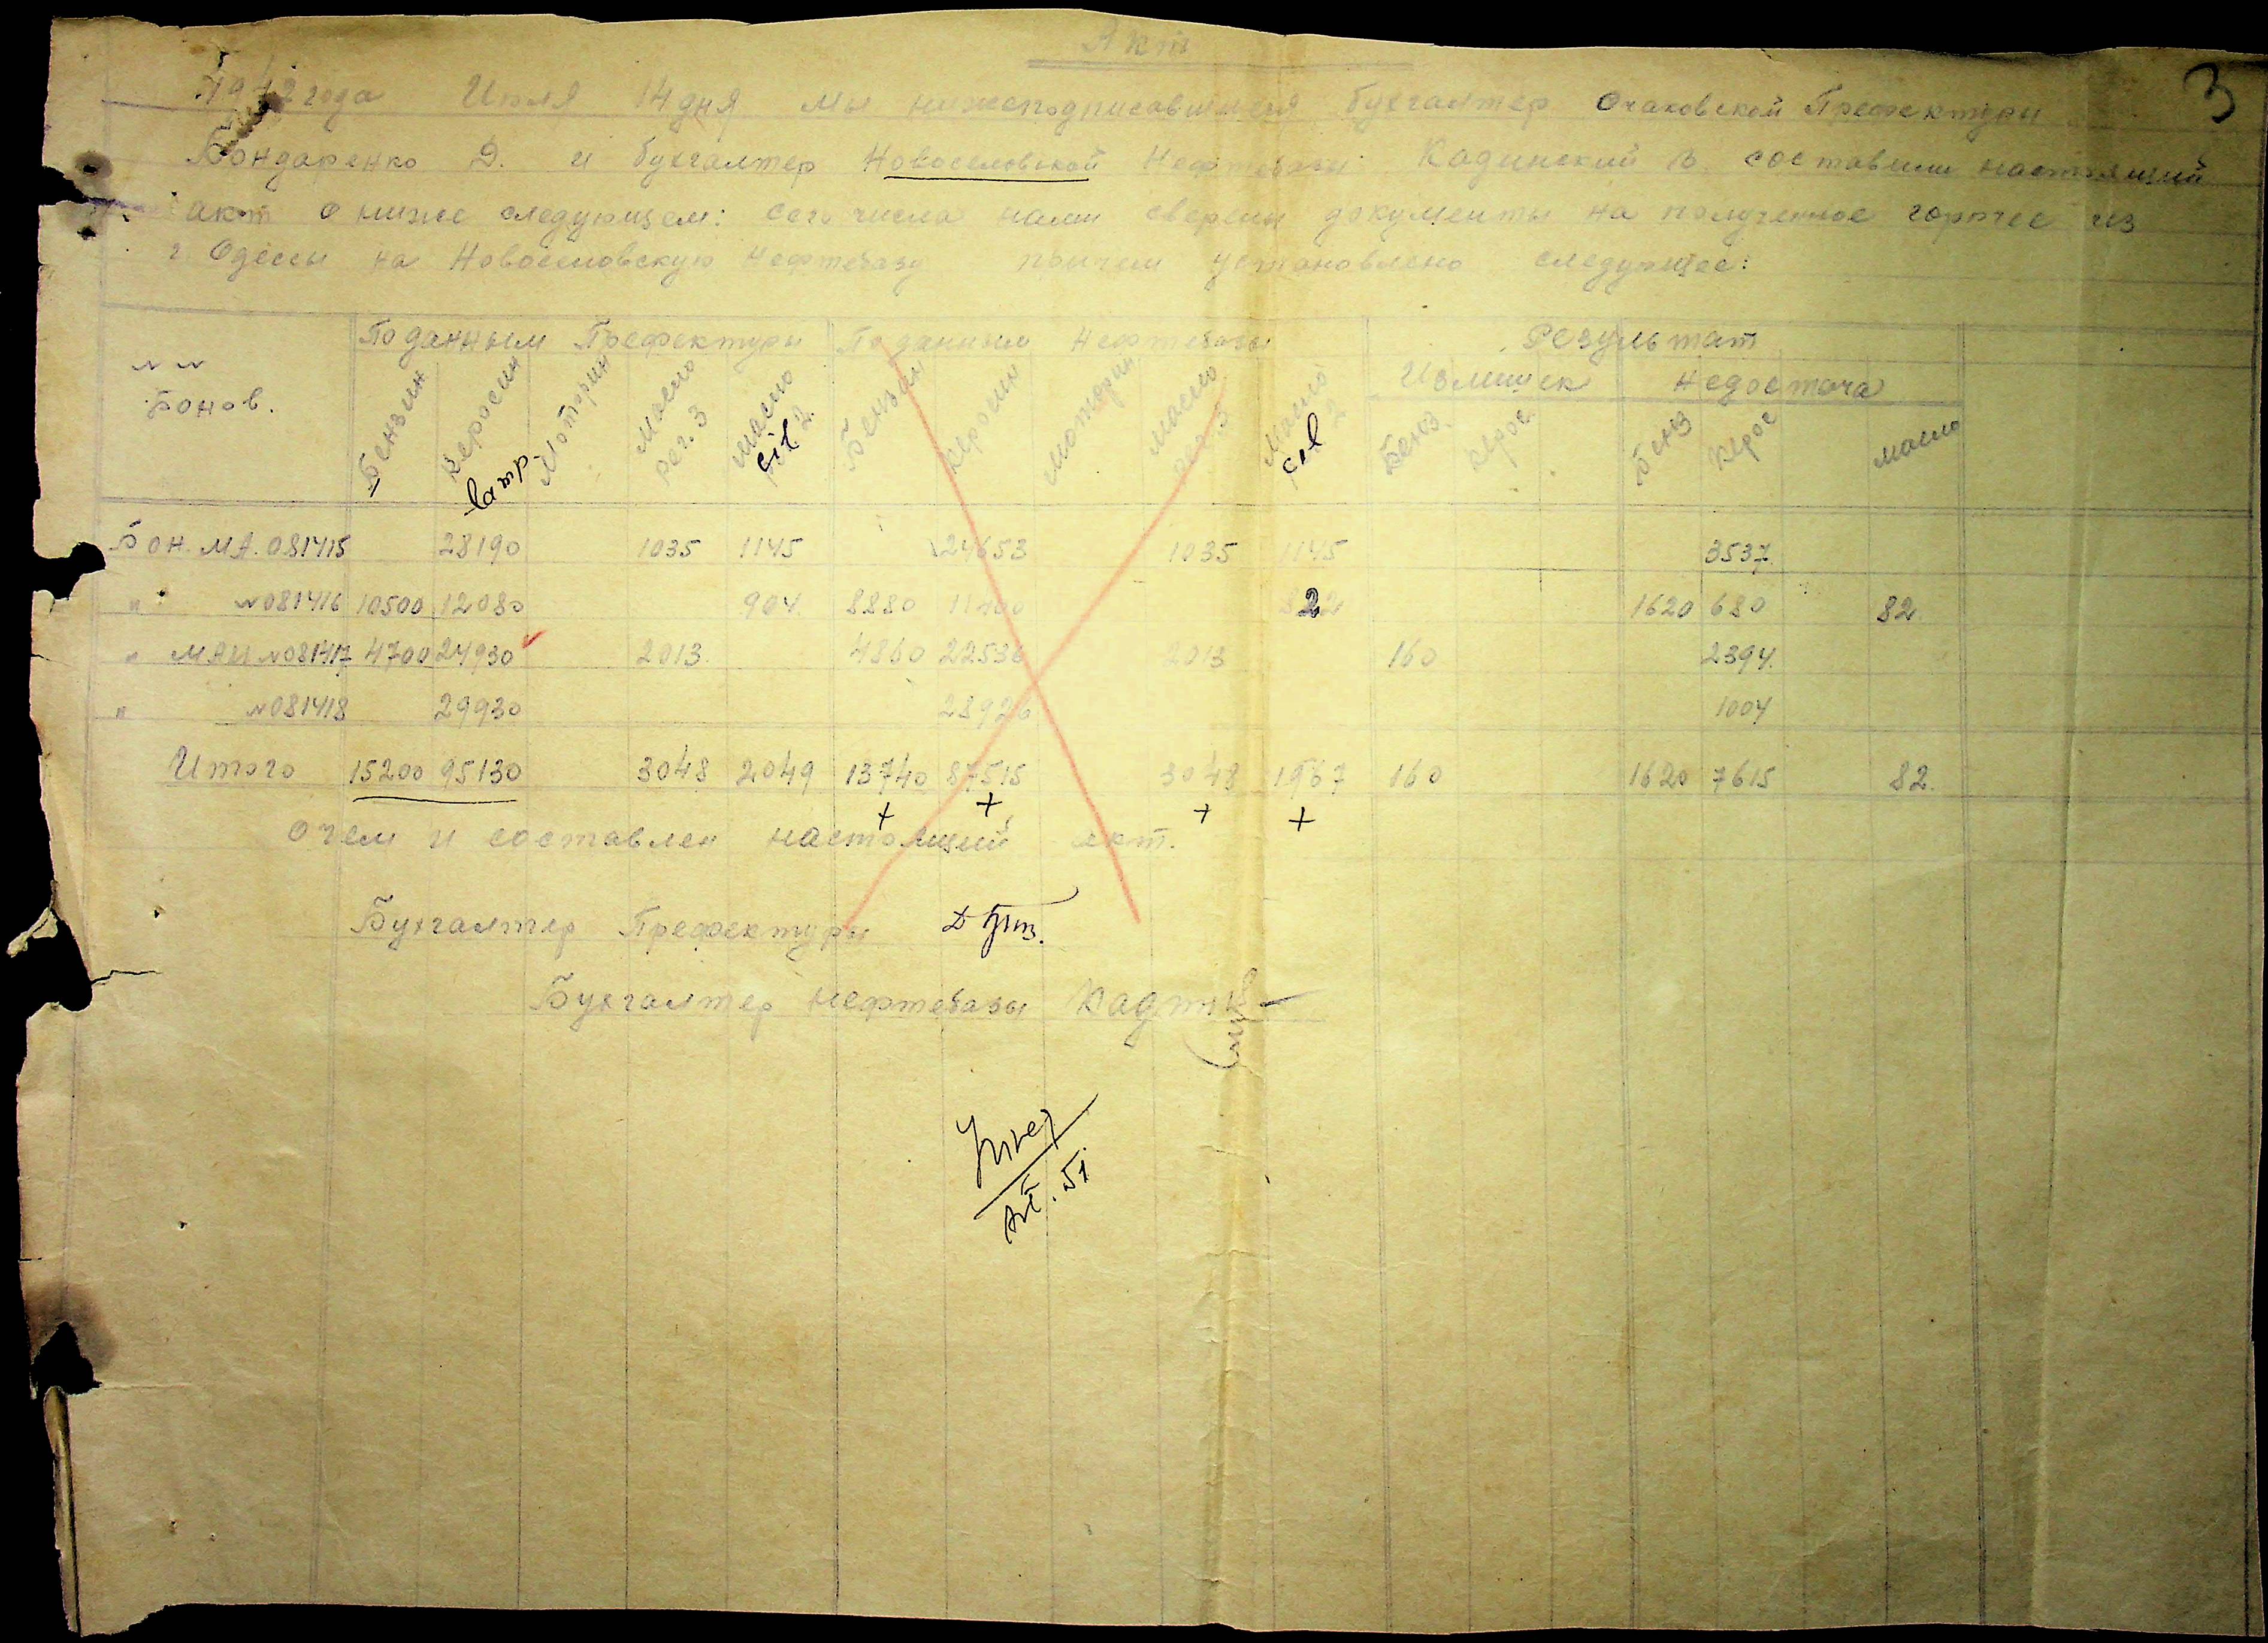 Акт
3
1942 года Июля 14 дня мы нижеподписавшиеся бухгалтер Очаковской Префектуры
Бондаренко Д. и бухгалтер Новоселовской Нефтебазы Кадинский В. составили настоящий
акт о ниже следующем: сего числа нами сверены документы на полученное горючее из
г. Одессы на Новоселовскую Нефтебазу причем установлено следующее:
По данным Префектуры По данным Нефтебазы Результат
Излишек Недостача
№№ Бонов. Бензин Керосин lamp. Моторин Масло рег. 3 Масло cil 2 Бензин Керосин Моторин Масло рег 3 Масло cil 2 Бенз. Керос. Бенз Керос масло
Бон. МА. 081415 28190 1035 1145 24653 1035 1145 3537
" №081416 10500 12080 904. 8880 11400 822 1620 680 82.
" МАИ №081417 4700 24930 2013. 4860 22536 2013 160 2394.
" №081418 29930 28926 1004
Итого 15200 95130 3048 2049 13740 87515 3048 1967 160 1620 7615 82.
+ + + +
О чем и составлен настоящий акт.
Бухгалтер Префектуры
Бухгалтер Нефтебазы